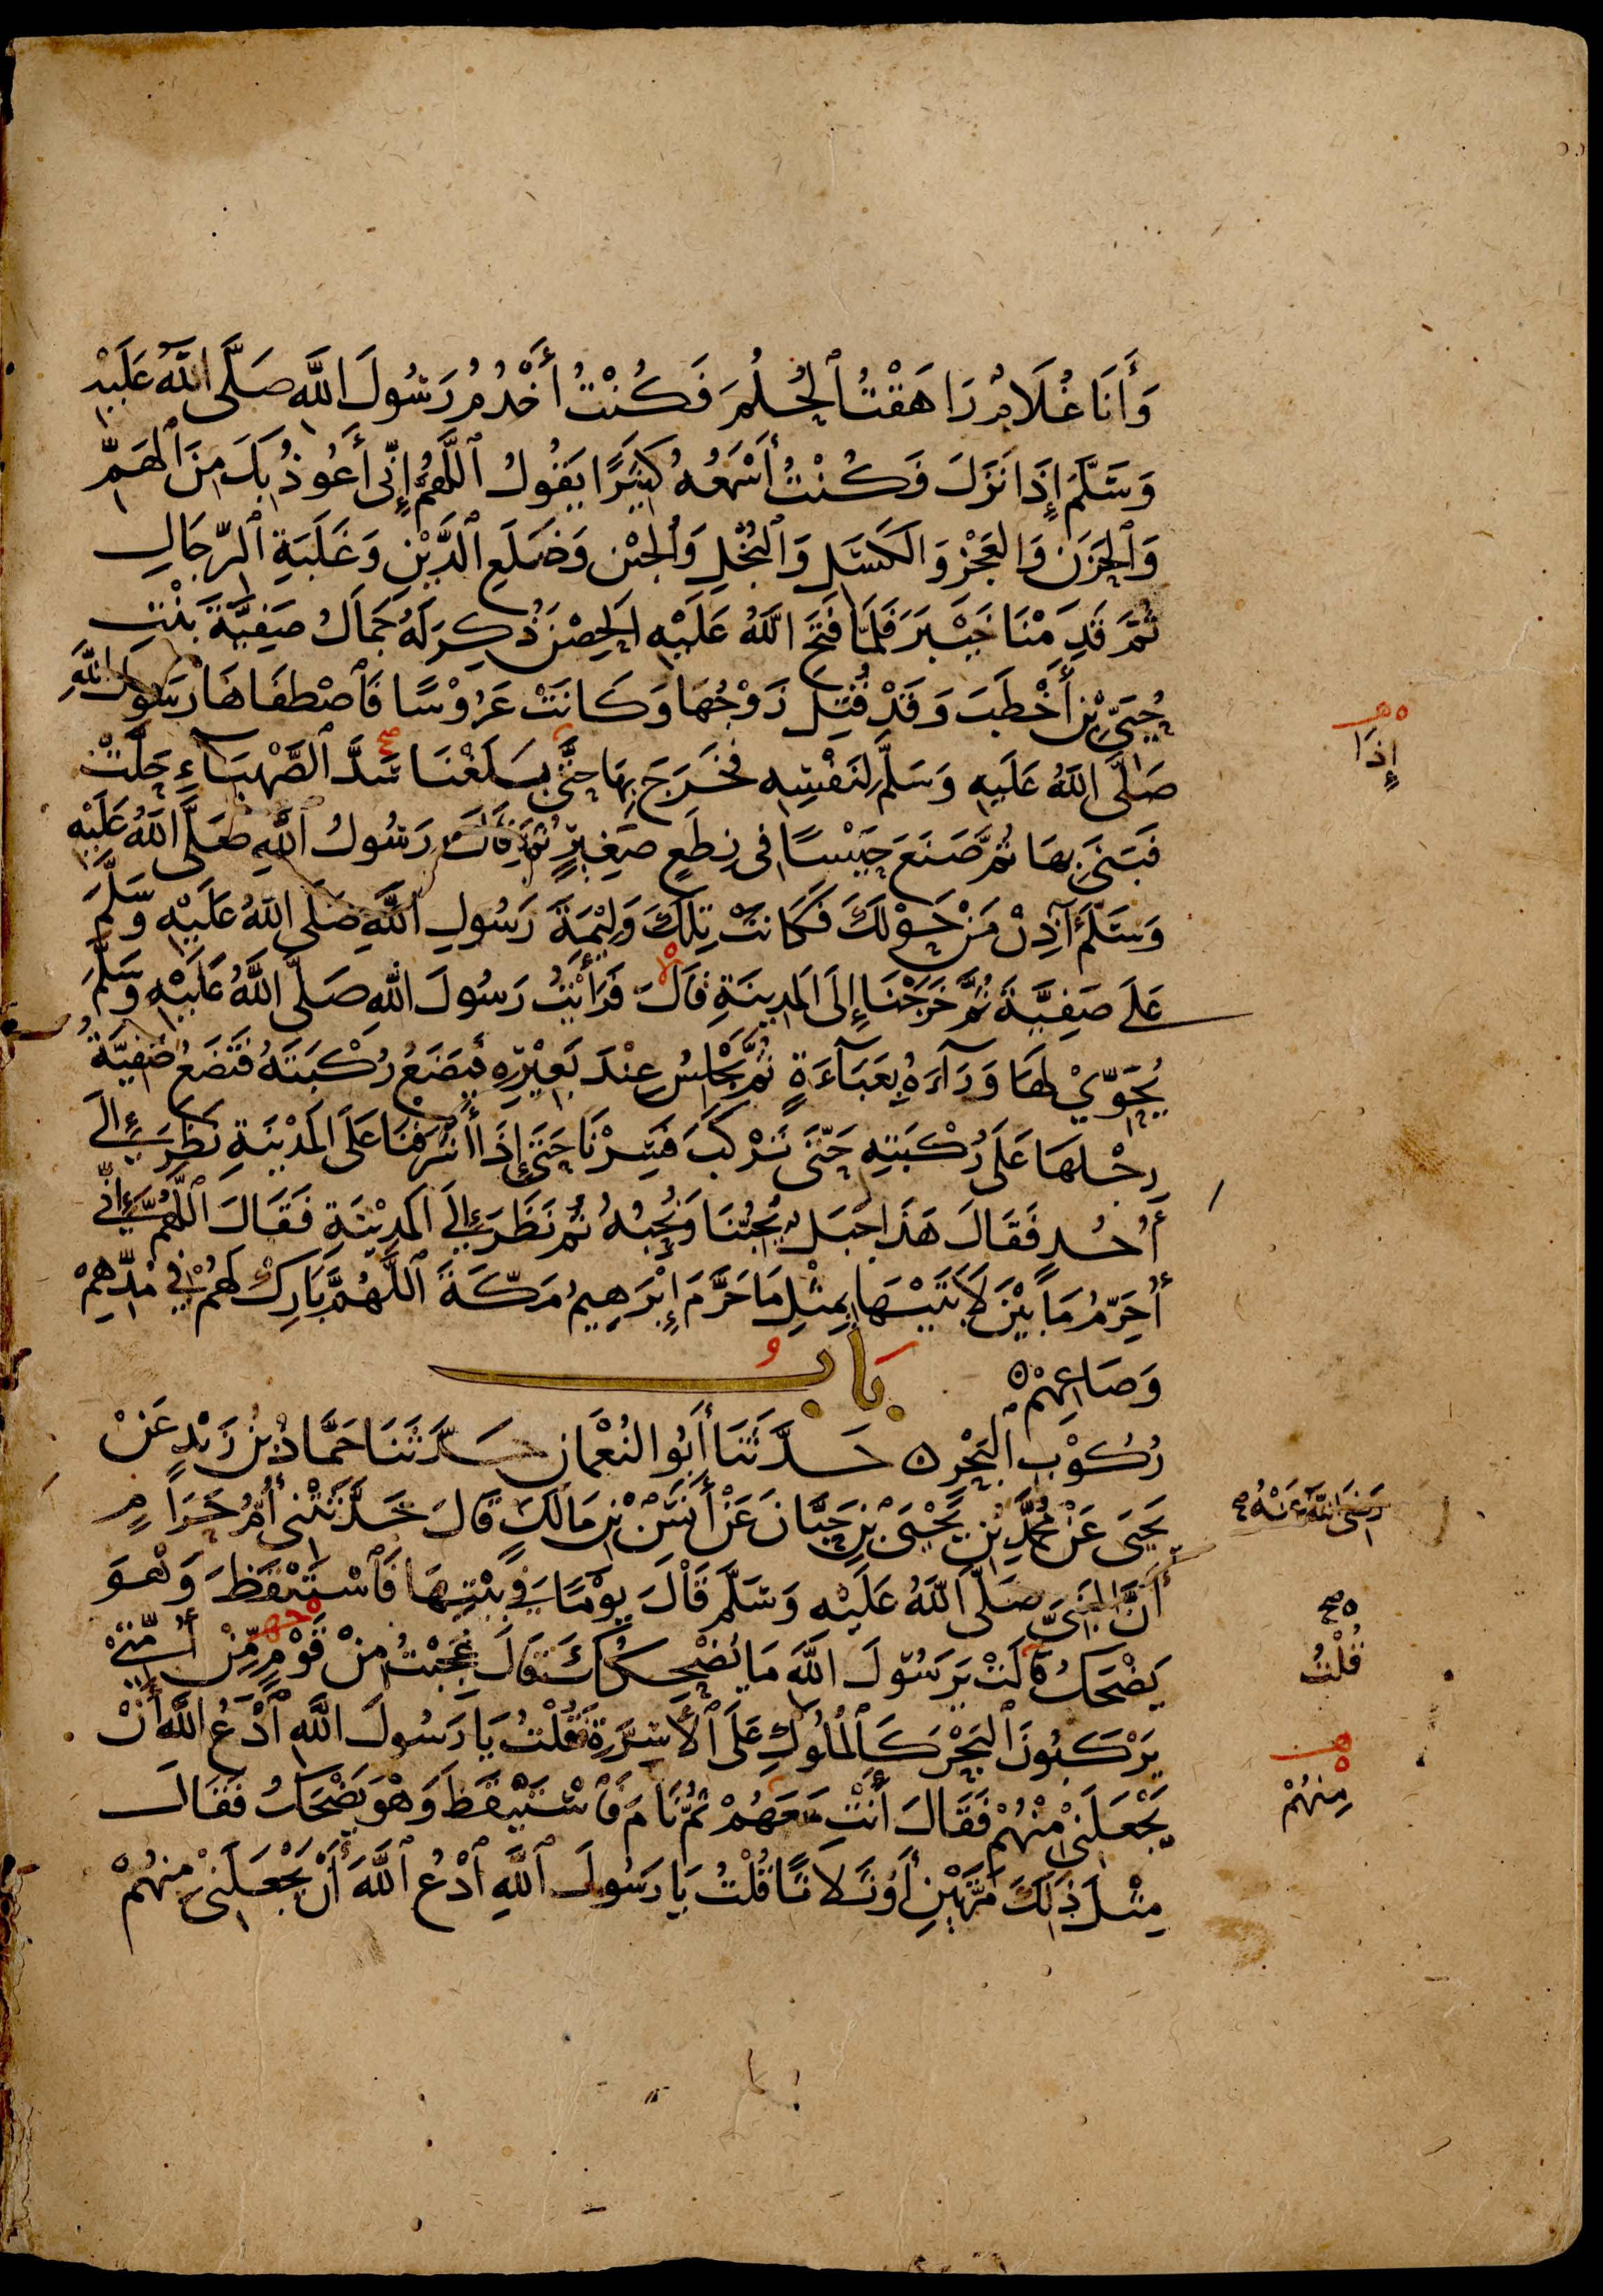 وَأَنَا غُلَامٌ رَاهَقْتُ ٱلْحُلُمَ فَكُنْتُ أَخْدُمُ رَسُولَ اللَّهِ صَلَّى اللَّهُ عَلَيْهِ
وَسَلَّمَ إِذَا نَزَلَ فَكُنْتُ أَسْمَعُهُ كَثِيرًا يَقُولُ ٱللَّهُمَّ إِنِّى أَعُوذُ بِكَ مِنَ ٱلْهَمِّ
وَٱلْحَزَنِ وَالْعَجْزِ وَالْكَسَلِ وَٱلْبُخْلِ وَٱلْجُبْنِ وَضَلَعِ الدَّيْنِ وَغَلَبَةِ ٱلرِّجَالِ
ثُمَّ قَدِمْنَا خَيْبَرَ فَلَمَّا فَتَحَ اللَّهُ عَلَيْهِ الْحِصْنَ ذُكِرَ لَهُ جَمَالُ صَفِيَّةَ بِنْتِ
حُيَىِّ بْنِ أَخْطَبَ وَقَدْ قُتِلَ زَوْجُهَا وَكَانَتْ عَرُوْسًا فَٱصْطَفَاهَا رَسُولُ اللَّهِ
صَلَّى اللَّهُ عَلَيْهِ وَسَلَّمَ لِنَفْسِهِ فَخَرَجَ بِهَا حَتَّى بَلَغْنَا سَدَّ ٱلصَّهْبَآءِ حَلَّتْ
إِذَا
فَبَنَى بِهَا ثُمَّ صَنَعَ حَيْسًا فِى نِطَعٍ صَغِيرٍ ثُمَّ قَالَ رَسُولُ ٱللَّهِ صَلَّى اللَّهُ عَلَيْهِ
وَسَلَّمَ آذِنْ مَنْ حَوْلَكَ فَكَانَتْ تِلْكَ وَلِيْمَةَ رَسُولِ اللَّهِ صَلَّى اللَّهُ عَلَيْهِ وَسَلَّمَ
عَلَى صَفِيَّةَ ثُمَّ خَرَجْنَا إِلَى الْمَدِينَةِ قَالَ فَرَأَيْتُ رَسُولَ اللَّهِ صَلَّى اللَّهُ عَلَيْهِ وَسَلَّمَ
يُحَوِّيْ لَهَا وَرَآءَهُ بِعَبَآءَةٍ ثُمَّ يَجْلِسُ عِنْدَ بَعِيْرِهِ فَيَضَعُ رُكْبَتَهُ فَتَضَعُ صَفِيَّةُ
رِجْلَهَا عَلَى رُكْبَتِهِ حَتَّى تَرْكَبَ فَسِرْنَا حَتَّى إِذَا أَشْرَفْنَا عَلَى الْمَدِيْنَةِ نَظَرَ إِلَى
أُحُدٍ فَقَالَ هَذَا جَبَلٌ يُحِبُّنَا وَنُحِبُّهُ ثُمَّ نَظَرَ إِلَى الْمَدِيْنَةِ فَقَالَ ٱللَّهُمَّ إِنِّى
أُحَرِّمُ مَا بَيْنَ لَابَتَيْهَا بِمِثْلِ مَا حَرَّمَ إِبْرَهِيمُ مَكَّةَ ٱللَّهُمَّ بَارِكْ لَهُمْ فِي مُدِّهِمْ
وَصَاعِهِمْ ه بَابُ
رُكُوْبِ الْبَحْرِ ه حَدَّثَنَا أَبُو النُّعْمَانِ حَدَّثَنَا حَمَّادُ بْنُ زَيْدٍ عَنْ
يَحْيَى عَنْ مُحَمَّدِ بْنِ يَحْيَىَ بْنِ حَبَّانَ عَنْ أَنَسِ بْنِ مَالِكٍ قَالَ حَدَّثَتْنِى أُمُّ حَرَامٍ
رَضِىَ اللَّهُ عَنْهُ صح
أَنَّ النَّبِىَّ صَلَّى اللَّهُ عَلَيْهِ وَسَلَّمَ قَالَ يَوْمًا فِي بَيْتِهَا فَٱسْتَيْقَظَ وَهْوَ
يَضْحَكُ قَالَتْ يَرَسُوْلَ اللَّهِ مَا يُضْحِكُكَ قَالَ عَجِبْتُ مِنْ قَوْمٍ مِّنْ أُمَّتِيْ
صح
قُلْتُ
يَرْكَبُونَ ٱلْبَحْرَ كَٱلْمُلُوكِ عَلَى ٱلْأَسِرَّةِ فَقُلْتُ يَا رَسُولَ اللَّهِ ٱدْعُ اللَّهَ أَنْ
يَجْعَلَنِىْ مِنْهُمْ فَقَالَ أَنْتِ مَعَهُمْ ثُمَّ نَامَ فَٱسْتَيْقَظَ وَهْوَ يَضْحَكُ فَقَالَ
مِنْهُمْ
مِثْلَ ذَلِكَ مَرَّتَيْنِ أَوْ ثَلَاثًا قُلْتُ يَا رَسُولَ ٱللَّهِ ٱدْعُ ٱللَّهَ أَنْ يَجْعَلَنِىْ مِنْهُمْ